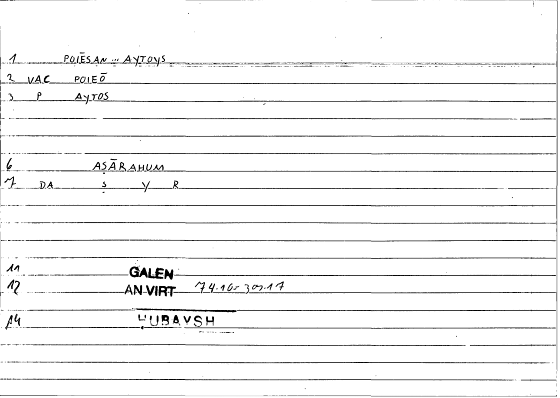 1 POIĒSAN ... AYTOYS
2 VAC POIEŌ
3 P AYTOS
6 AṢĀRAHUM
7 DA Ṣ Y R
11 GALEN
12 AN VIRT
14 ḤUBAYSH